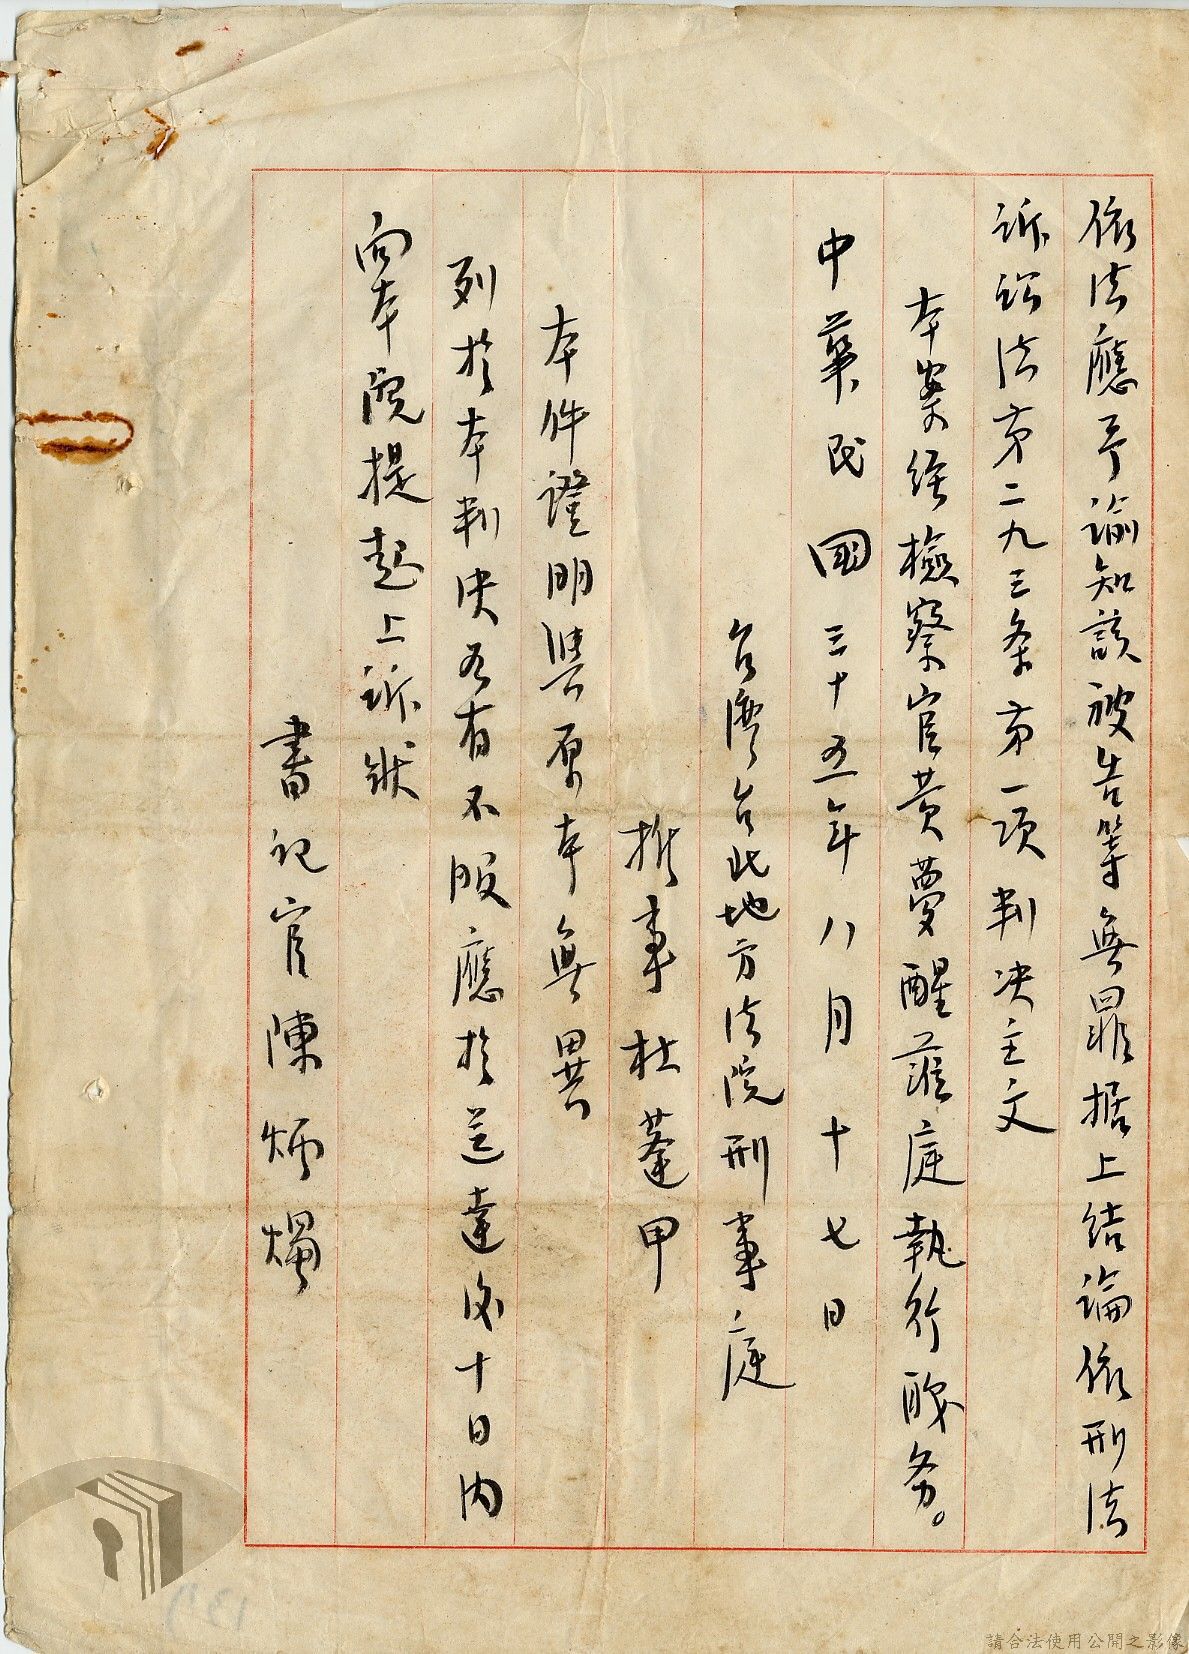 依法應予諭知該被告等無罪据上結論依刑法
訴訟法第二九三条第一項判决主文
本案経檢察官黄夢醒蒞庭執行职务。
中華民國三十五年八月十七日
台灣台北地方法院刑事庭
推事杜蓬甲
本件證明與原本無異
列於本判决如有不服應於送達后十日内
向本院提起上訴狀
書记官陳炳燭
請合法使用公開之影像